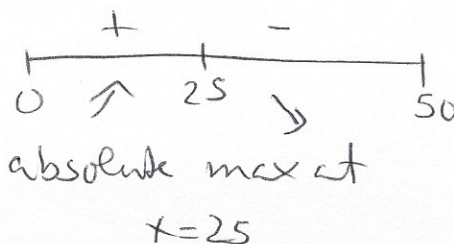 + -
0 25 50
absolute max at
x=25